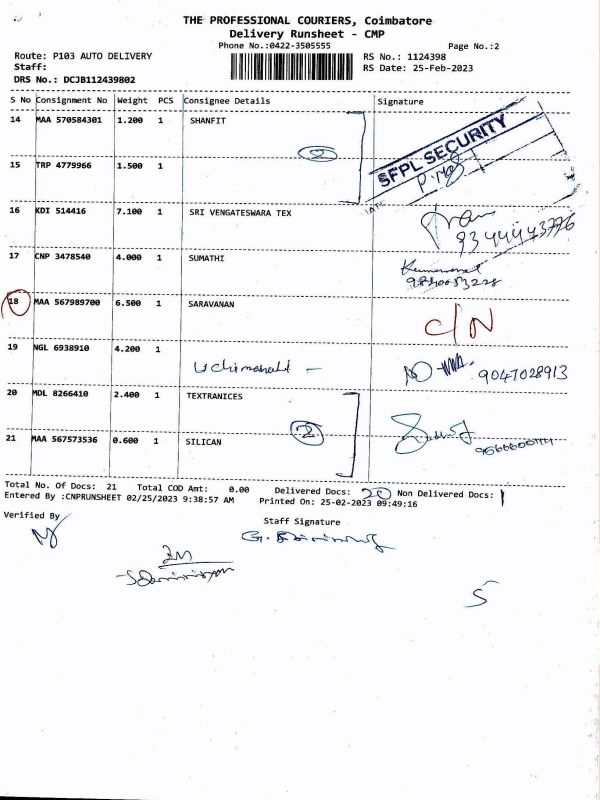 THE PROFESSIONAL COURIERS, Coimbatore
Delivery Runsheet - CMP
Phone No.:0422-3505555 Page No.:2
Route: P103 AUTO DELIVERY RS No.: 1124398
Staff: RS Date: 25-Feb-2023
DRS No.: DCJB112439802
S No Consignment No Weight PCS Consignee Details Signature
14 MAA 570584301 1.200 1 SHANFIT
2
SFPL SECURITY
15 TRP 4779966 1.500 1
16 KDI 514416 7.100 1 SRI VENGATESWARA TEX
9344443796
17 CNP 3478540 4.000 1 SUMATHI
18 MAA 567989700 6.500 1 SARAVANAN C/N
19 NGL 6938910 4.200 1
9047028913
20 MDL 8266410 2.400 1 TEXTRANICES
2
21 MAA 567573536 0.600 1 SILICAN
Total No. Of Docs: 21 Total COD Amt: 0.00 Delivered Docs: 20 Non Delivered Docs: 1
Entered By :CNPRUNSHEET 02/25/2023 9:38:57 AM Printed On: 25-02-2023 09:49:16
Verified By Staff Signature
5